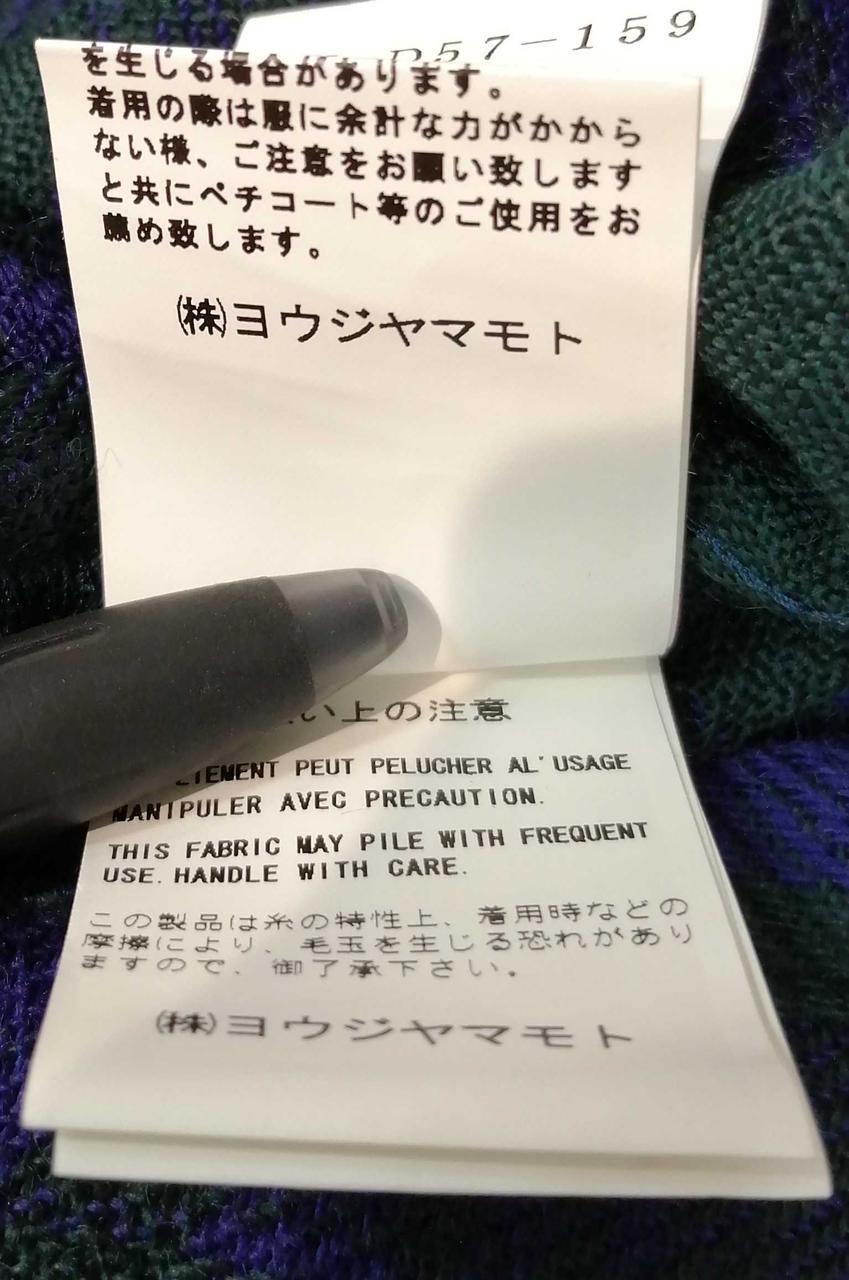 P57-159
を生じる場合があります。
着用の際は服に余計な力がかから
ない様、ご注意をお願い致します
と共にペチコート等のご使用をお
薦め致します。
㈱ヨウジヤマモト
い上の注意
PEUT PELUCHER AL'USAGE
MANIPULER AVEC PRECAUTION.
THIS FABRIC MAY PILE WITH FREQUENT
USE. HANDLE WITH CARE.
この製品は糸の特性上、着用時などの
摩擦により、毛玉を生じる恐れがあり
ますので、御了承下さい。
㈱ヨウジヤマモト